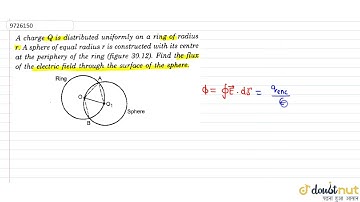 9726150
A charge Q is distributed uniformly on a ring of radius
r. A sphere of equal radius r is constructed with its centre
at the periphery of the ring (figure 30.12). Find the flux
of the electric field through the surface of the sphere.
Ring
A
O
O₁
B
Sphere
ϕ = ∮E⃗ . ds⃗ = q_enc / ϵ₀
doubtnut